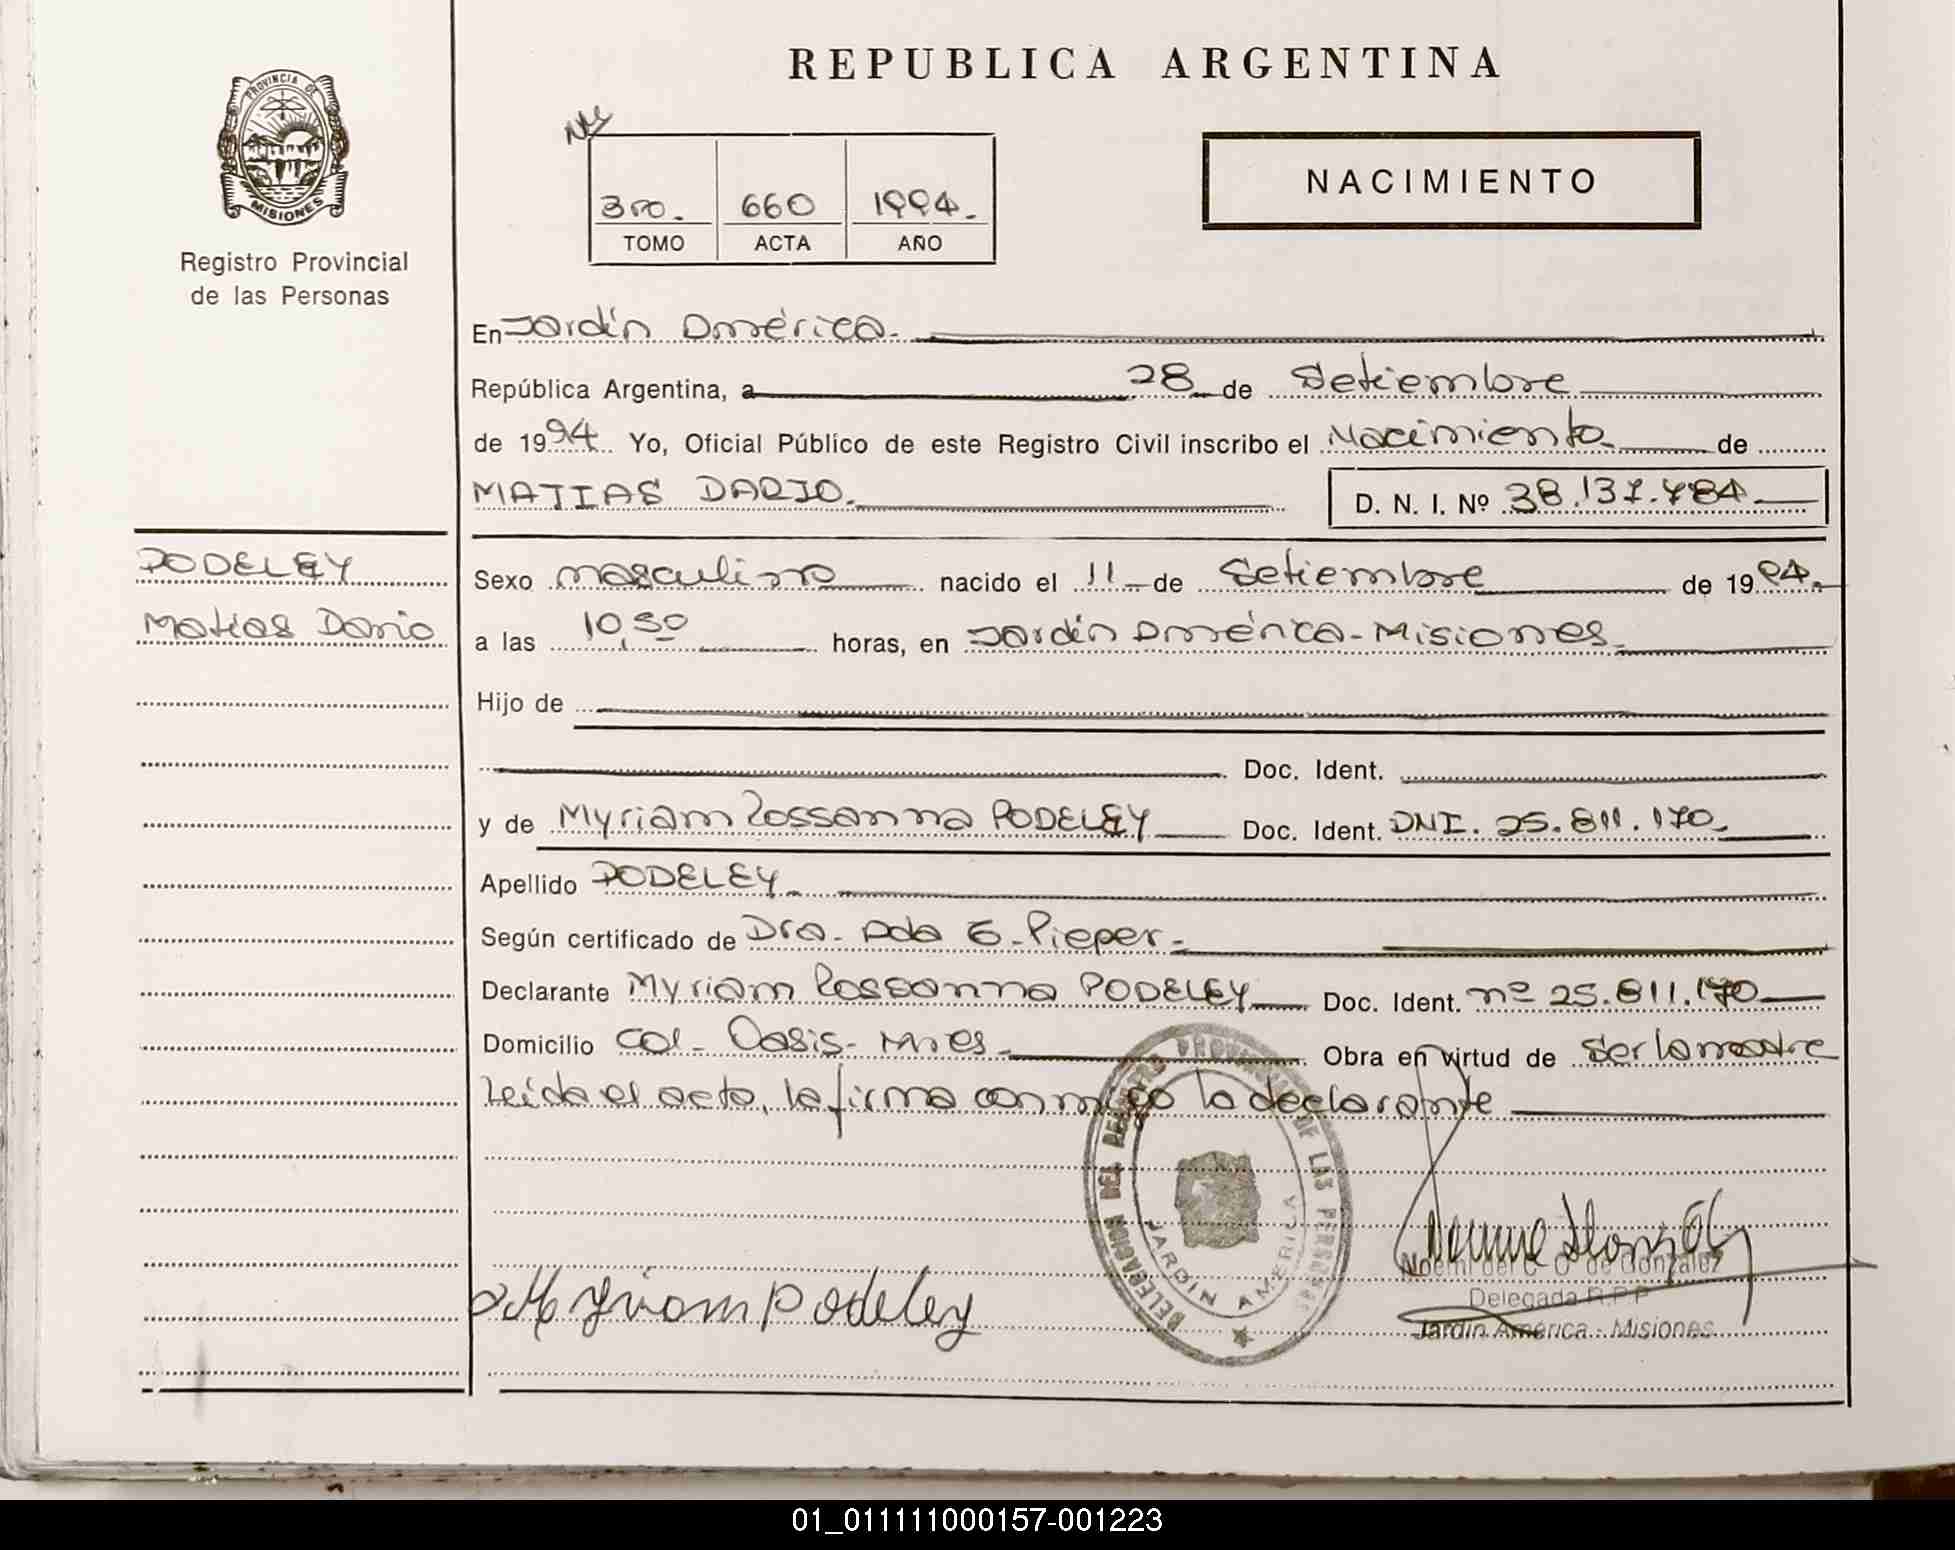 REPUBLICA ARGENTINA
PROVINCIA DE
MISIONES
Registro Provincial
de las Personas
3ro. 660 1994.
TOMO ACTA AÑO
NACIMIENTO
En Jardín América.
República Argentina, a 28 de Setiembre
de 1994. Yo, Oficial Público de este Registro Civil inscribo el Nacimiento de
MATIAS DARIO. D. N. I. Nº
PODELEY
Matias Dario
Sexo masculino nacido el 11 de Setiembre de 1994.
a las horas, en Jardín América - Misiones
Hijo de
Doc. Ident.
y de Myriam Rossanna PODELEY Doc. Ident. DNI. 25.811.170.
Apellido PODELEY.
Según certificado de Dra. Ada E. Pieper.
Declarante Myriam Rossanna PODELEY Doc. Ident. nº 25.811.170
Domicilio Col. Oasis - Mnes. Obra en virtud de ser la madre
Leída el acta, la firma conmigo la declarante
DELEGACION DEL REGISTRO PROVINCIAL DE LAS PERSONAS
JARDIN AMERICA
Myriam Podeley
Noemi del C. de Gonzalez
Delegada R.P.P
Jardín América - Misiones
01_011111000157-001223